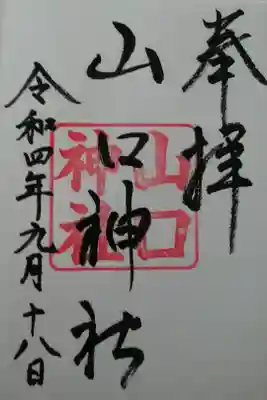 奉拝
山口神社
山口
神社
令和四年九月十八日